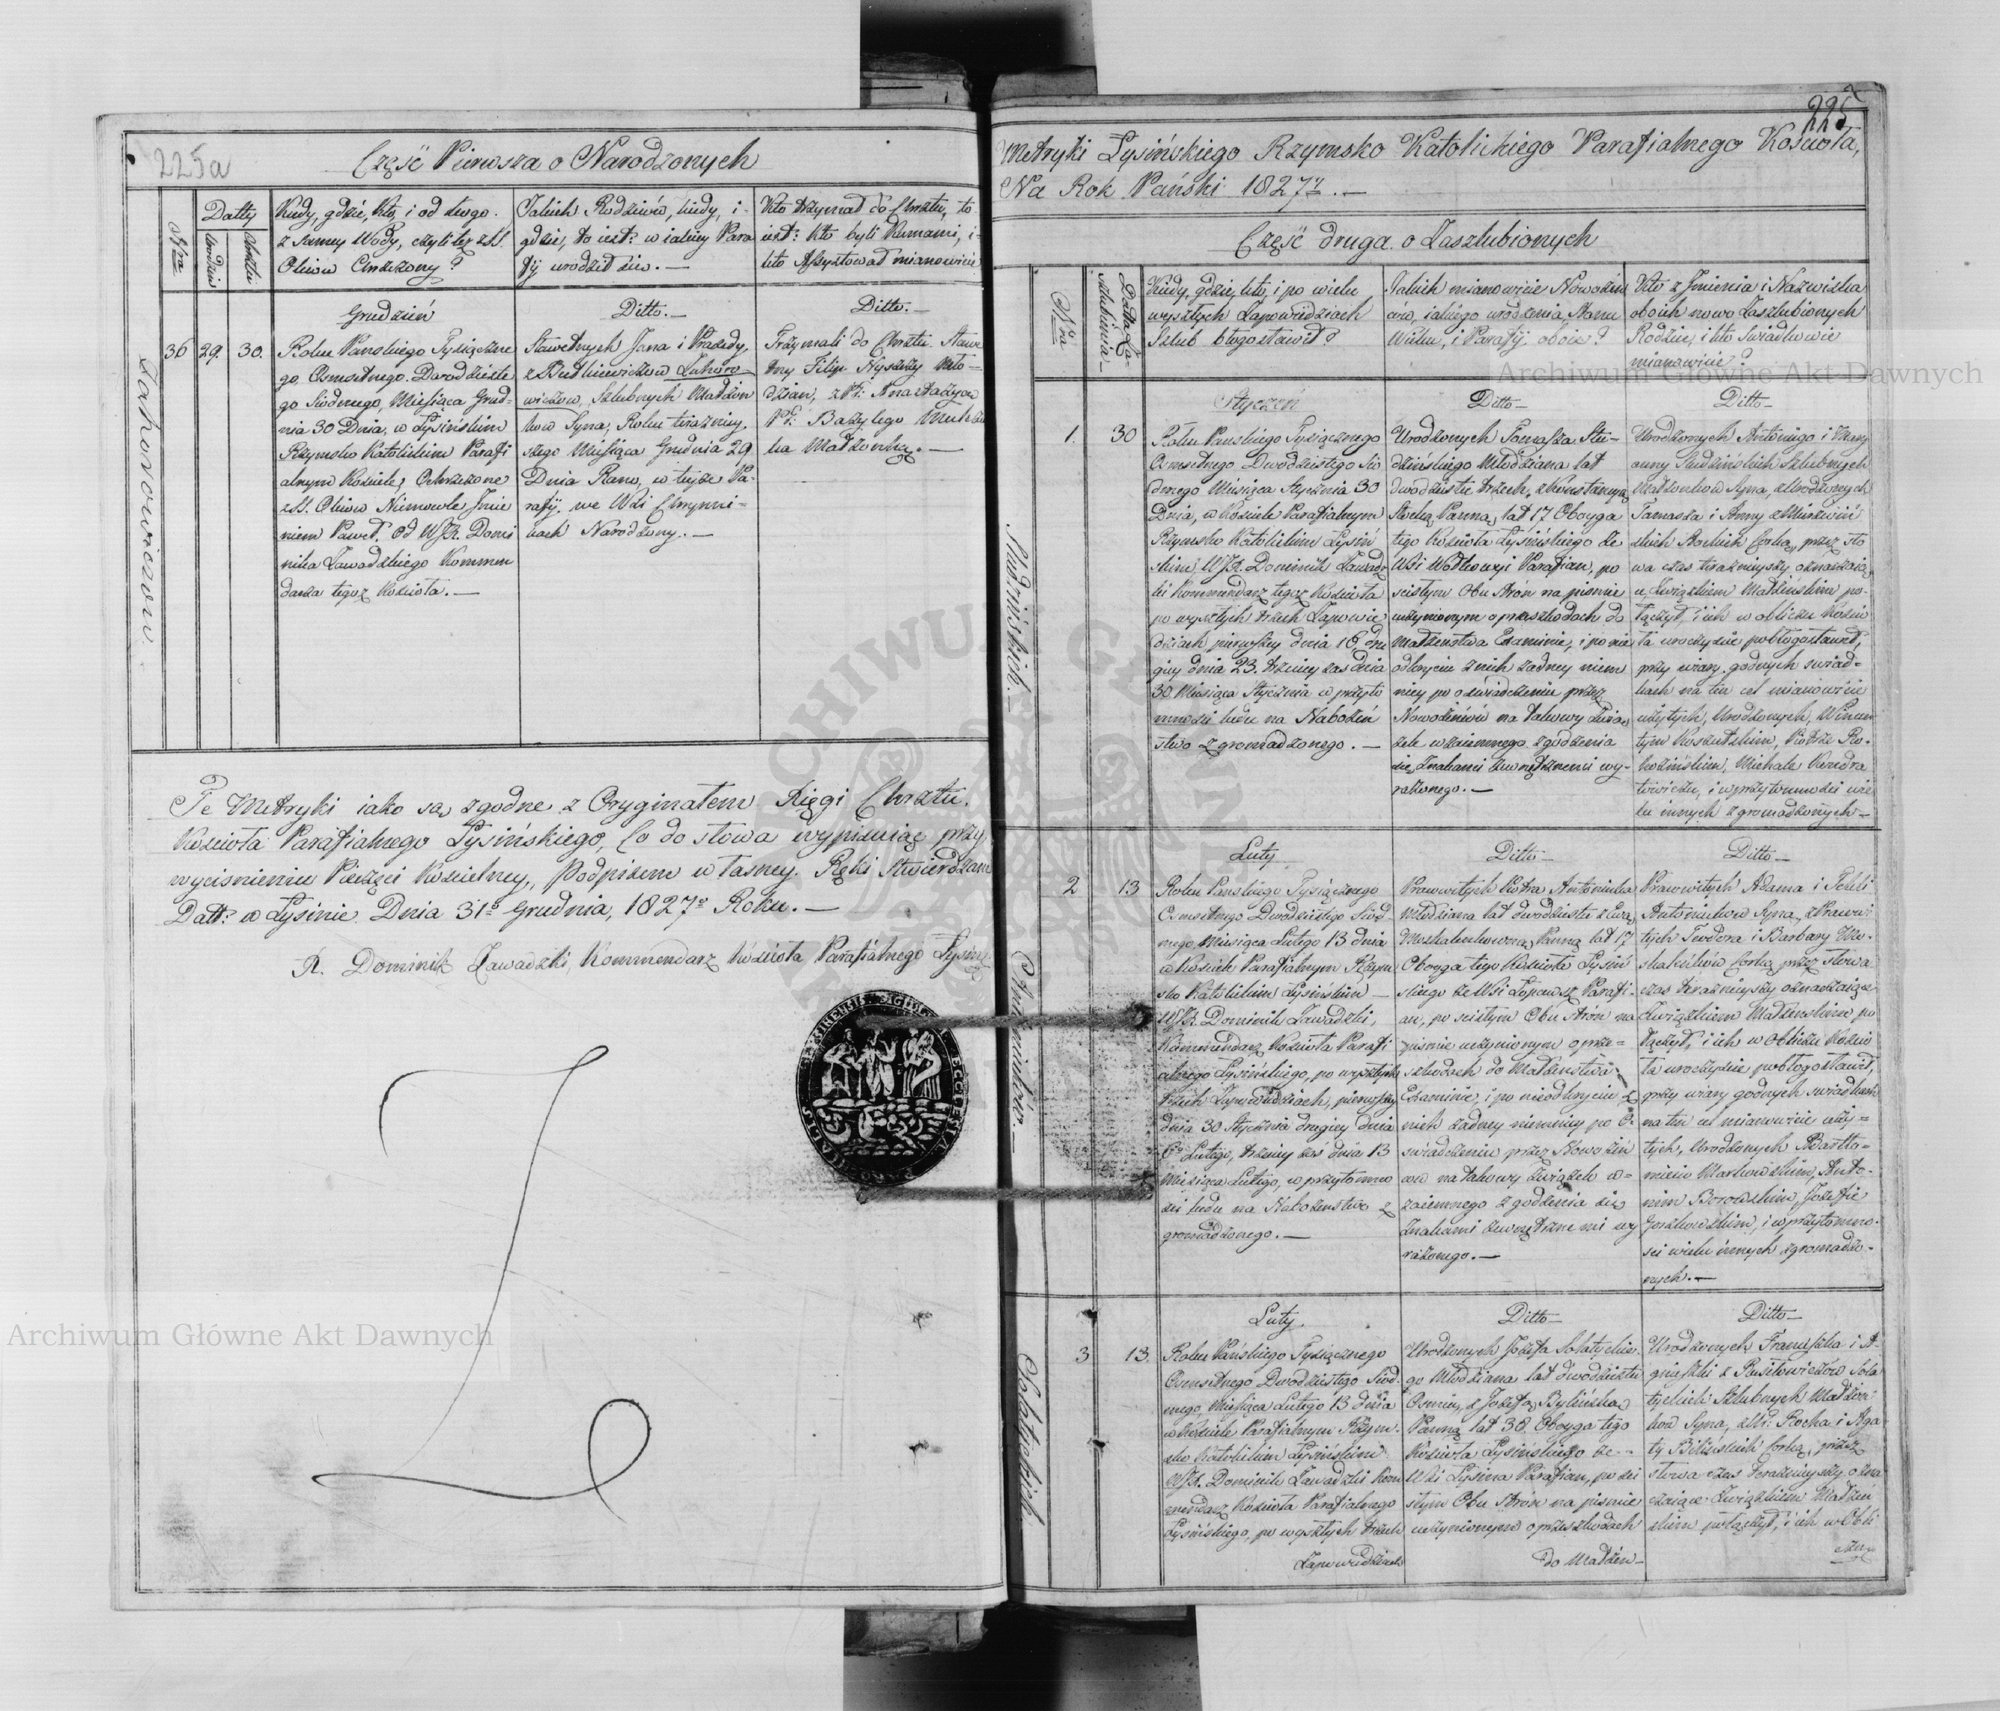 225a
Część Pierwsza o Narodzonych
Nra
Datty
Urodzin
Chrztu
Kiedy, gdzie, kto, i od kogo
z Samey Wody, czyli też z SS.
Oleiow Chrzczony?
Jakich Rodziców, kiedy, i
gdzie, to iest: w iakiey Para
fij urodził się. —
Kto trzymał do Chrztu, to
iest: kto byli Kumami, i
kto Assystował mianowicie
Zahorowiczow.
36 29. 30.
Grudzień
Roku Panskiego Tysiączne
go Osmsetnego Dwódzieste
go Siodmego, Miesiąca Grud-
nia 30 Dnia, w Łysińskim
Rzymsko Katolickim Parafi
alnym Kościele, Ochrzczone
z SS. Oleiow Niemowle Imie
niem Paweł. Od WJX. Domi
nika Zawadzkiego Kommen
darza tegoż Kościoła. —
Ditto. —
Sławetnych Jana i Praxedy,
z Butkiewiczow Zahoro
wiczow, Szlubnych Małżon
kow Syna, Roku teraźniey-
szego Miesiąca Grudnia 29
Dnia Rano, w teyże Pa-
rafij, we Wsi
Narodzony. —
Ditto. —
Trzymali do Chrztu. Sławe
tny Filip Mło-
dzian, z Anastazyą
Bazylego
ka Małżonką. —
Te Metryki iako są zgodne z Oryginałem Xięgi Chrztu.
Kościoła Parafialnego Łysińskiego, Co do słowa wypisuiąc przy
wyciśnieniu Pieczęci Kościelney, Podpisem własney Ręki Stwierdzam
Datt: w Łysinie Dnia 31° Grudnia, 1827° Roku. —
X. Dominik Zawadzki, Kommendarz Kościoła Parafialnego Łysińs
225
Metryki Łysińskiego Rzymsko Katolickiego Parafialnego Kościoła,
Na Rok Pański 1827. —
Część druga o Zaszlubionych
Nra
Datta Za-
szlubienia
Kiedy, gdzie, kto, i po wielu
wyszłych Zapowiedziach
Szlub błogosławił?
Jakich mianowicie Nowożeń
ców, iakiego urodzenia, Stanu
Wieku, i Parafij oboie?
Kto z Imienia i Nazwiska
oboich nowo Zaszlubionych
Rodzice, i kto Swiadkowie
mianowicie?
Studzińskich. —
1. 30
Styczeń
Roku Panskiego Tysiącznego
Osmsetnego Dwodziestego Sio
dmego Miesiąca Stycznia 30
Dnia, w Kościele Parafialnym
Rzymsko Katolickim Łysiń
skim WJX. Dominik Zawadz
ki Kommendarz tegoż Kościoła
po wyszłych trzech Zapowie
dziach, pierwszey dnia 16, dru
giey dnia 23. trzeciey zas dnia
30 Miesiąca Stycznia w przyto
mności ludu na Nabożeń
stwo zgromadzonego. —
Ditto —
Urodzonych Tomasza Stu-
dzińskiego Młodziana lat
dwodziestu trzech, z Konstancyą
Panną, lat 17 Oboyga
tego Kościoła Łysińskiego ze
Wsi Parafian, po
scisłym Obu Strón na piśmie
uczynionym o przeszkodach do
Małżenstwa Examinie, i po nie
odkryciu z nich żadney niem
niey po oświadczeniu przez
Nowożeńców na takowy Związ
zek wzaiemnego zgodzenia
się, Znakami zewnętrznemi wy-
rażonego. —
Ditto —
Urodzonych Antoniego i Mary
anny Studzińskich Szlubnych
Małżonkow Syna, z Urodzonych
Tomasza i Anny
Corką, przez sło
wa czas teraźnieyszy oznaczaią
ce, Związkiem Małżeńskim po-
łączył, i ich w obliczu Kościo
ła uroczyscie pobłogosławił,
przy wiary godnych swiad-
kach na ten cel mianowicie
użytych, Urodzonych, Wincen
tym Piotrze Ro-
Michale
i w przytomności wie
lu innych zgromadzonych —
Antoniukow. —
2 13
Luty.
Roku Panskiego Tysiącznego
Osmsetnego Dwodziestego Siod-
mego, Miesiąca Lutego 13 dnia
w Kościele Parafialnym Rzym
sko Katolickim Łysińskim —
WJX. Dominik Zawadzki,
Kommendarz Kościoła Parafi
alnego Łysińskiego, po wyszłych
trzech Zapowiedziach, pierwszey
dnia 30 Stycznia drugiey dnia
6° Lutego, trzeciey zas dnia 13
Miesiąca Lutego, w przytomno
ści ludu na Nabożenstwo z
gromadzonego. —
Ditto —
Pracowitych Piotra Antoniuka
Młodziana lat dwodziestu z Ewą
Panną lat 17
Oboyga tego Kościoła Łysiń
skiego ze Wsi Parafi-
an, po scisłym Obu Strón na
piśmie uczynionym o prze-
szkodach do Małżenstwa
Examinie, i po nieodkryciu z
nich żadney niemniey po O-
świadczeniu przez Nowożeń
ców na takowy Związek w-
zaiemnego zgodzenia się
Znakami zewnętrznemi wy
rażonego. —
Ditto —
Pracowitych Adama i Tekli
Antoniukow Syna, z Pracowi
tych Teodora i Barbary Mo-
Corką przez słowa
czas teraźnieyszy oznaczaiące
Związkiem Małżenskim po
łączył, i ich w Obliczu Kościo
ła uroczyscie pobłogosławił,
przy wiary godnych swiadkach
na ten cel mianowicie uży-
tych, Urodzonych Bartło-
mieiu Markowskim, Anto-
nim Borowskim, Jozefie
i w przytomno-
ści wielu innych zgromadzo-
nych. —
Sołatyckich.
3 13.
Luty.
Roku Pańskiego Tysiącznego
Osmsetnego Dwodziestego Siod-
mego, Miesiąca Lutego 13 dnia
w Kościele Parafialnym Rzym-
sko Katolickim Łysińskim
WJX. Dominik Zawadzki Kom
mendarz Kościoła Parafialnego
Łysińskiego, po wyszłych trzech
Zapowiedziach
Ditto —
Urodzonych Jozefa Sołatyckie-
go Młodziana lat dwodziestu
Osmiu, z Jozefą Bylińską
Panną lat 38. Oboyga tego
Kościoła Łysińskiego ze —
Wsi Łysina Parafian, po sci
słym Obu Strón na piśmie
uczynionym o przeszkodach
do Małżen-
Ditto —
Urodzonych Franciszka i A-
gnieszki z Soła
tyckich Szlubnych Małżon-
kow Syna, z Ur: Rocha i Aga
ty Bilińskich Corką, przez
słowa czas teraźnieyszy ozna
czaiące Związkiem Małżeń
skim połączył, i ich w Obli
czu
Archiwum Główne Akt Dawnych
Archiwum Główne Akt Dawnych